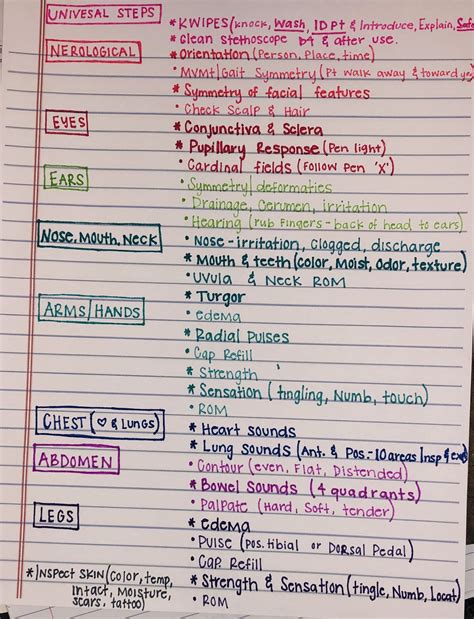 UNIVESAL STEPS
* KWIPES (knock, Wash, ID Pt & Introduce, Explain, Safe
* Clean Stethoscope b4 & after use.
NEROLOGICAL
* Orientation (Person, Place, time)
• MVMt/Gait Symmetry (Pt walk away & toward
* Symmetry of facial features
• Check Scalp & Hair
EYES
* Conjunctiva & Sclera
* Pupillary Response (Pen light)
• Cardinal fields (Follow Pen 'X')
EARS
• Symmetry/deformaties
• Drainage, Cerumen, irritation
• Hearing (rub Fingers - back of head to ears)
Nose, Mouth, Neck
• Nose - irritation, Clogged, discharge
* Mouth & teeth (color, Moist, Odor, texture)
• Uvula & Neck ROM
ARMS/HANDS
* Turgor
• edema
* Radial Pulses
• Cap Refill
* Strength
* Sensation (tingling, Numb, touch)
• ROM
CHEST (♡ & LUNGS)
* Heart sounds
* Lung sounds (Ant. & Pos. - 10 areas Insp & exp
ABDOMEN
• Contour (even, Flat, Distended)
* Bowel Sounds (4 quadrants)
• Palpate (Hard, Soft, tender)
LEGS
* edema
• Pulse (Pos. tibial or Dorsal Pedal)
• Cap Refill
* Strength & Sensation (tingle, Numb, Locat)
• ROM
* INSPECT SKIN (Color, temp,
intact, Moisture,
scars, tattoo)